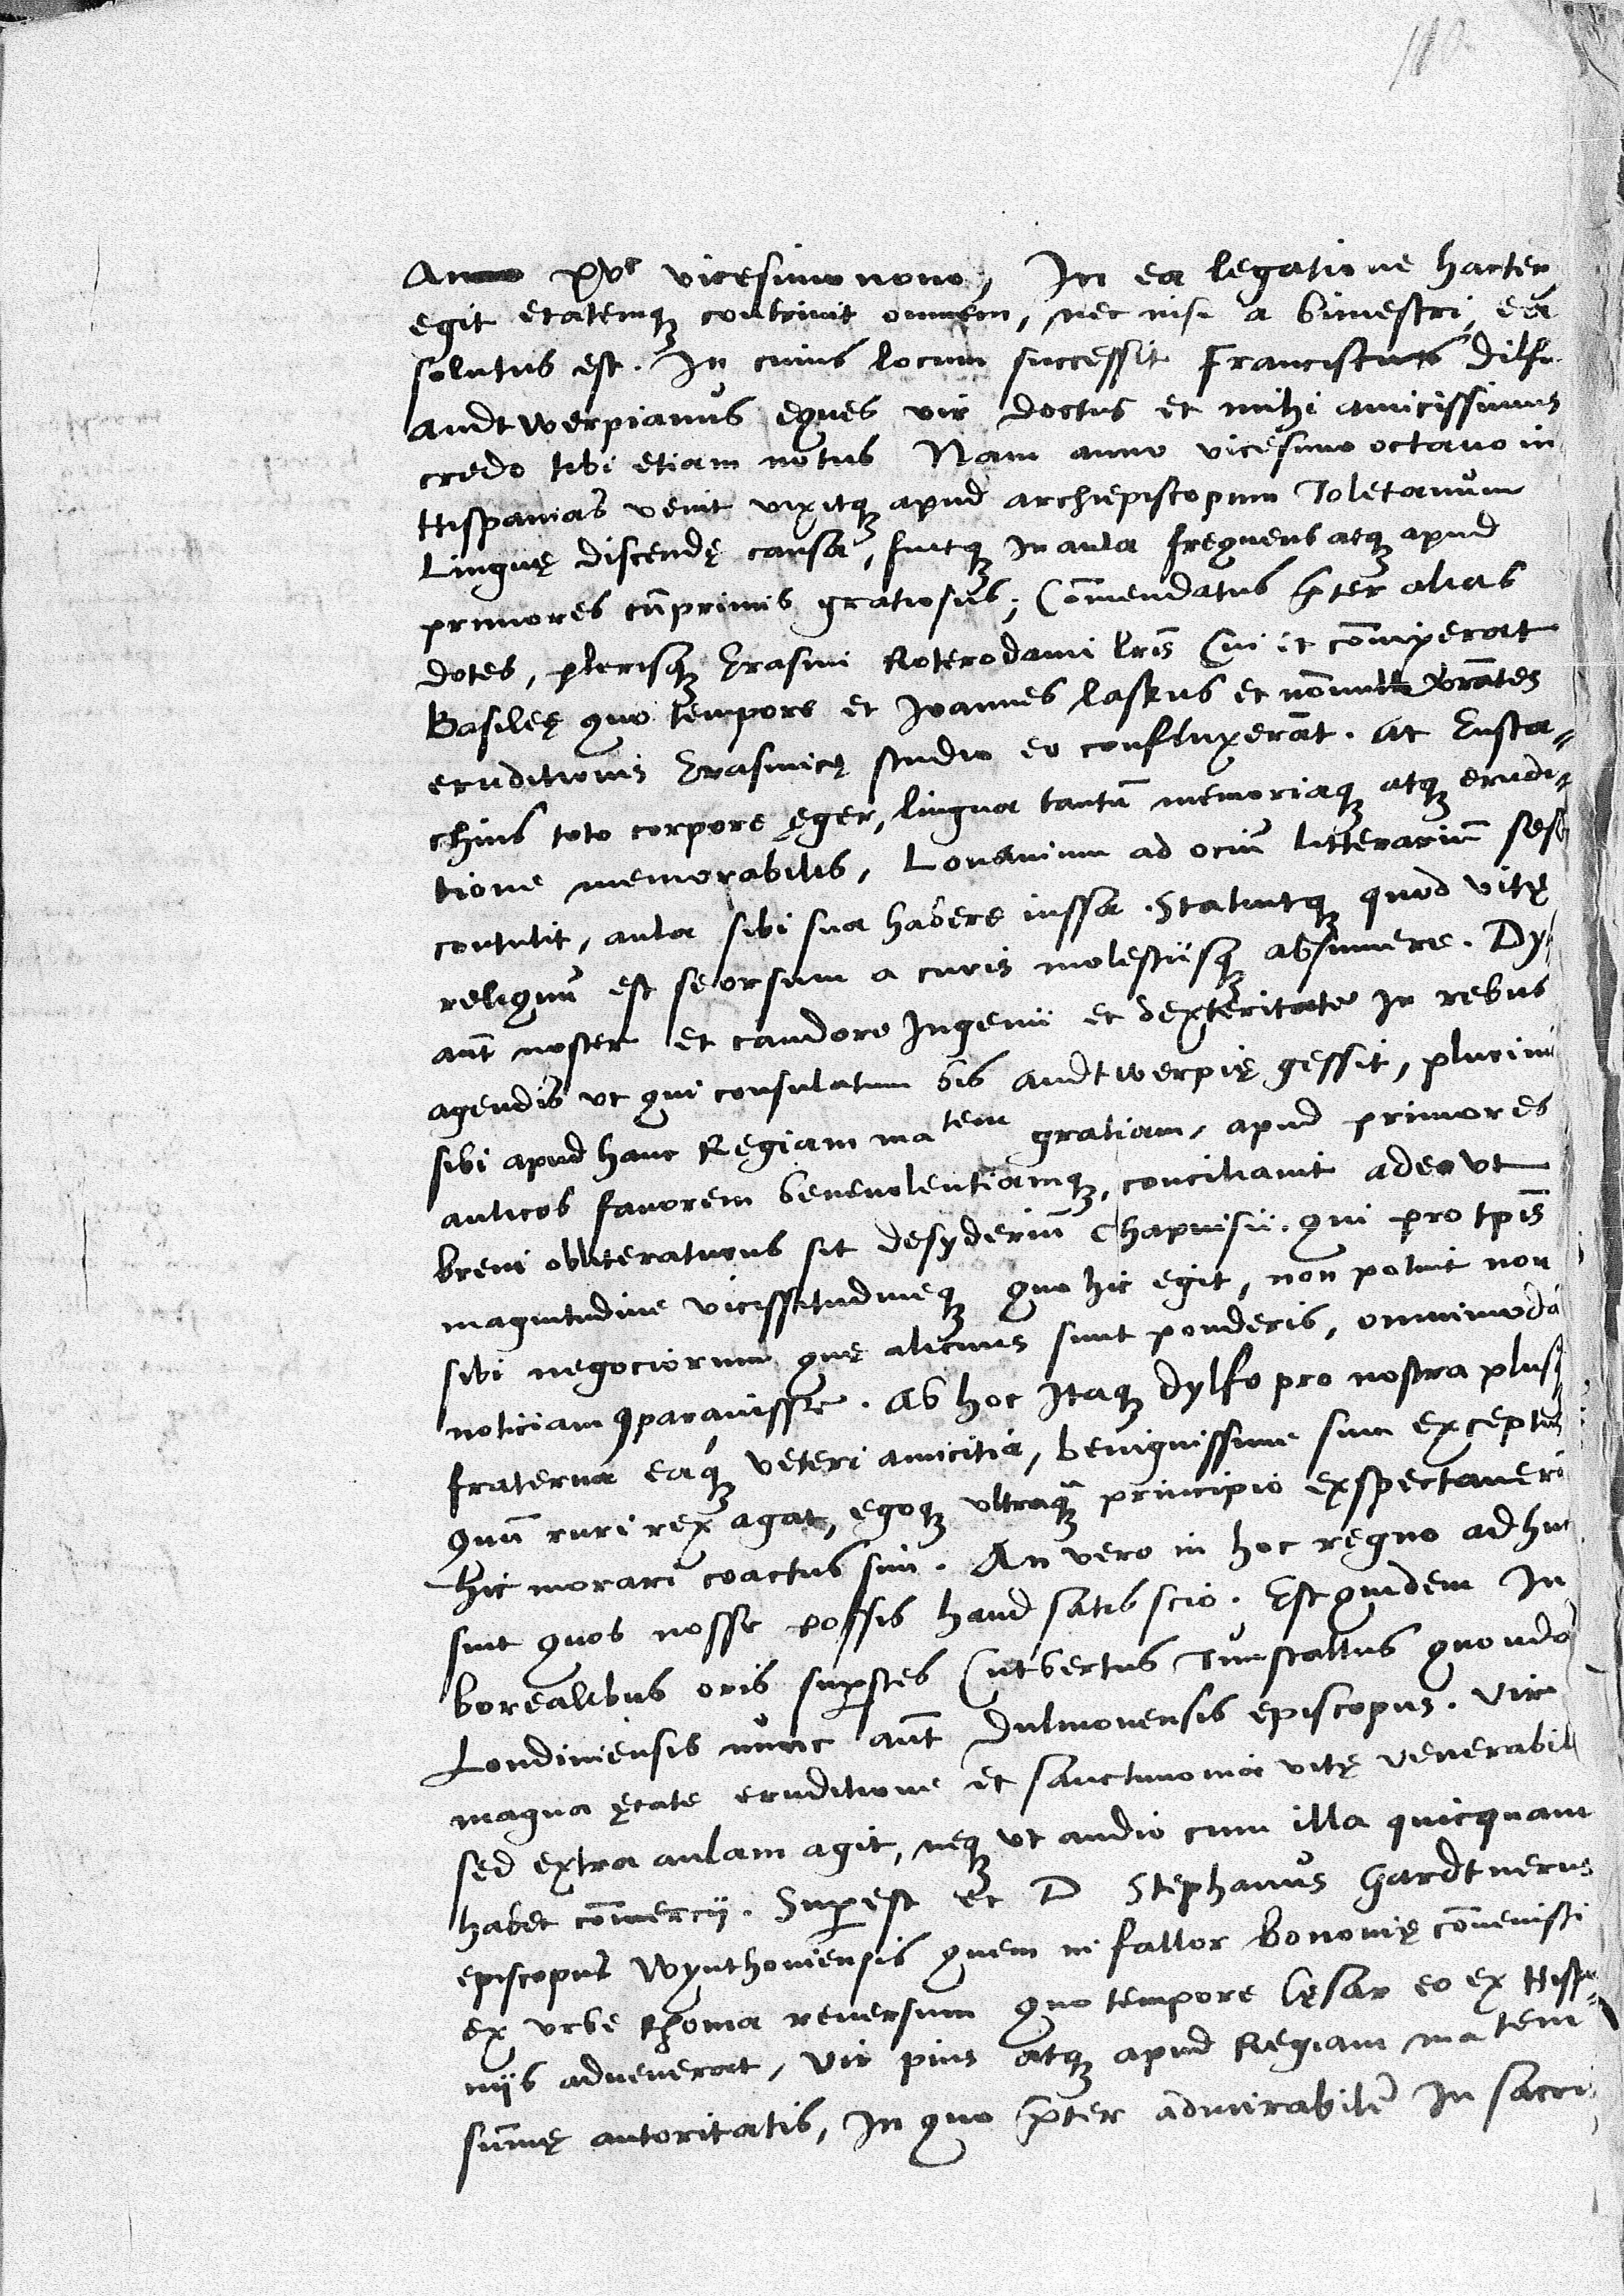 110
Anno xvc vicesimo nono, In ea legatione hacten
egit etatemqȝ contrivit omnem, nec nisi a bimestri ea
solutus est. In cuius locum successit Franciscus Dilfu
andtwerpianus eques vir doctus et mihi amicissimus
credo tibi etiam notus Nam anno vicesimo octavo in
Hispanias venit vixitqȝ apud archiepiscopum Toletanum
Linguę discendę causa, fuitqȝ in aula frequens atqȝ apud
primores cūprimis gratiosus; Cōmendatus p̄ter alias
dotes, plerisqȝ Erasmi Roterodami lr̄is Cui et cōvixerat
Basileę quo tempore et Joannes laskus et nōnulli
eruditionis Erasmicę studio eo confluxerāt. At Eusta⸗
chius toto corpore ęger, lingua tantū memoriaqȝ atqȝ erudi⸗
tione memorabilis, Lovanium ad ociū litterariū sese
contulit, aula sibi sua habere iussa. Statuitqȝ quod vitę
reliquū est seorsum a curis molestiisqȝ absumere. Dy
aūt noster et candore Ingenii et dexteritate in rebus
agendis vt qui consulatum bis andtwerpię gessit, plurimā
sibi apud hanc Regiam matem gratiam, apud primores
aulicos favorem benevolentiamqȝ, conciliavit adeo vt
brevi obliteraturus sit desyderiū Chapuisii. qui pro tp̄is
magnitudine vicessitudineqȝ quo hic egit, non potuit non
sibi negociorum quę alicuius sunt ponderis, omnimodā
noticiam ꝯparavisse. Ab hoc Itaqȝ dylfo pro nostra plusq
fraterna eaqȝ veteri amicitia, benignissime sum exceptus
Quū ruri rex agat, egoqȝ ultraqȝ principio exspectaveri
hic morari coactus sim. An vero in hoc regno adhuc
sint quos nosse possis haud satis scio. Est quidem In
borealibus oris suꝑstes Cutbertus Tunstallus quondā
Londiniensis nunc aūt Dulmonensis episcopus. vir
magna ętate eruditione et sanctimonia vitę venerabil
sed extra aulam agit, neqȝ vt audio cum illa quicquam
habet cōmercii. Suꝑest et D Stephanus Gardtnerus
episcopus wynthoniensis quem ni fallor bononię cōvenisti
ex vrbe Rhoma reversum quo tempore Cęsar eo ex Hispa⸗
niis advenerat, vir pius atqȝ apud Regiam matem
sūmę autoritatis, In quo p̄ter admirabilē In sacri